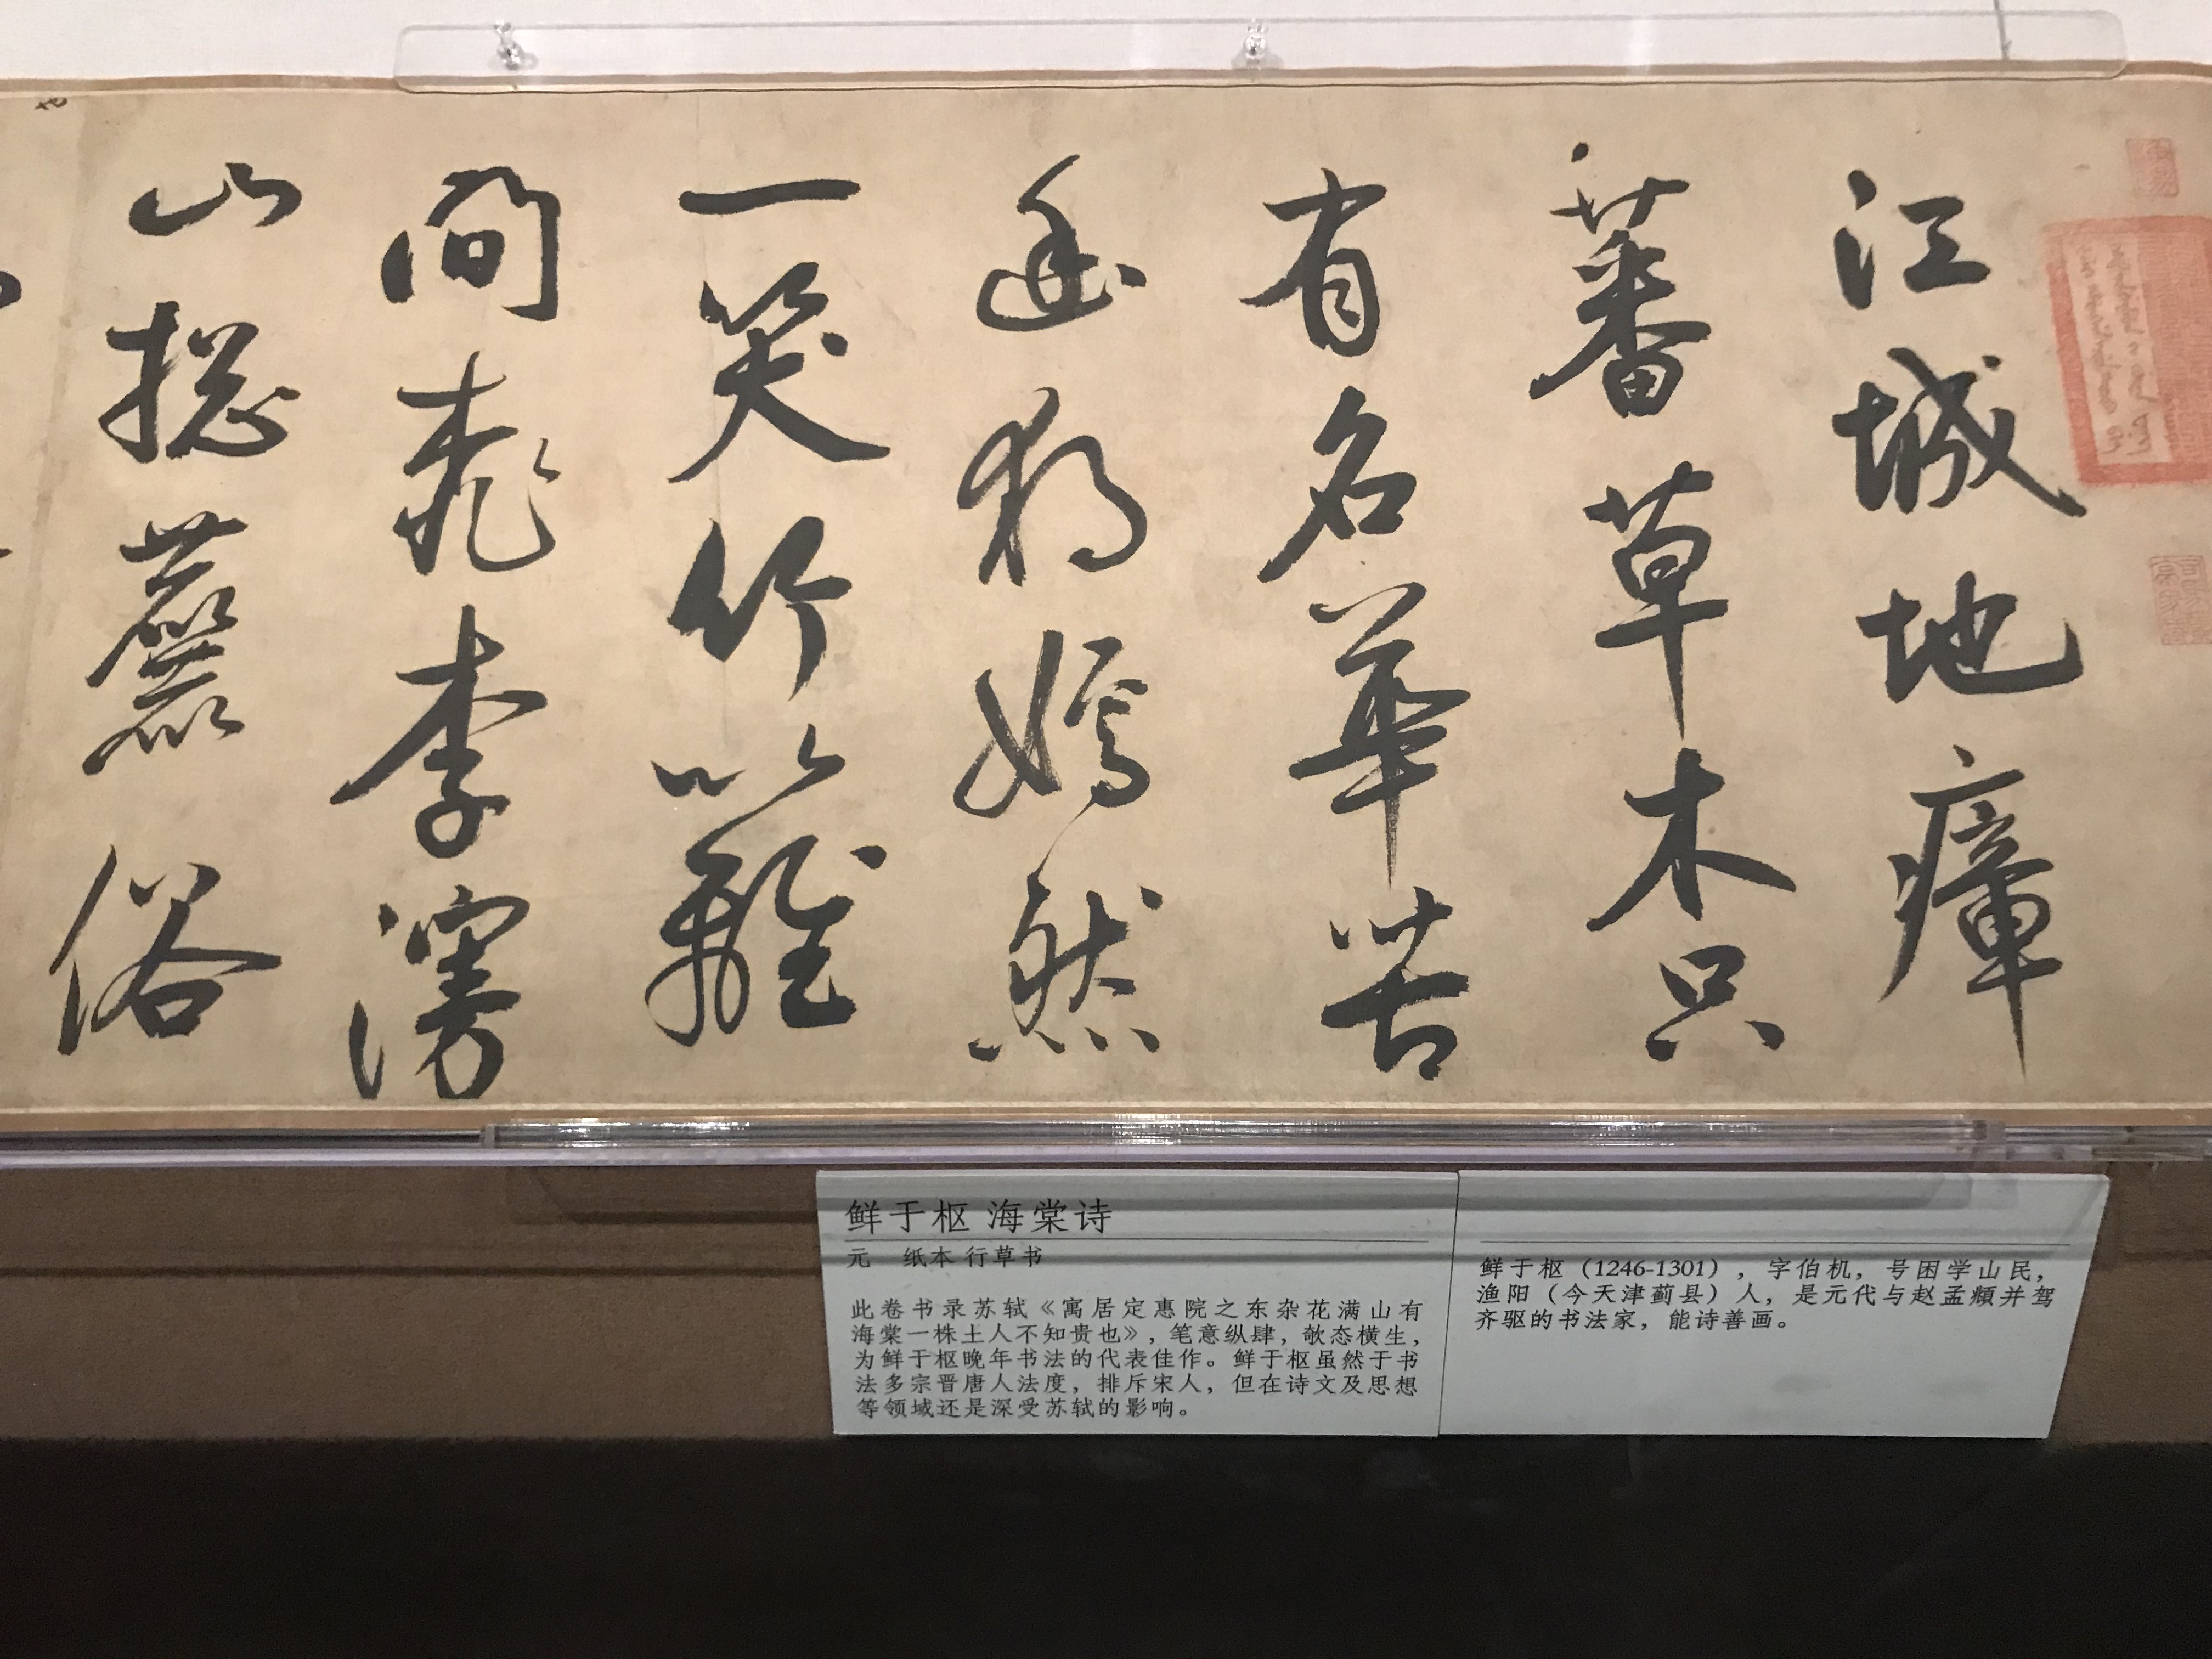 江城地瘴
蕃草木只
有名華苦
幽獨嫣然
一笑竹籬
間桃李漫
山捴麤俗
鲜于枢 海棠诗
元 纸本 行草书
此卷书录苏轼《寓居定惠院之东杂花满山有
海棠一株土人不知贵也》，笔意纵肆，欹态横生，
为鲜于枢晚年书法的代表佳作。鲜于枢虽然于书
法多宗晋唐人法度，排斥宋人，但在诗文及思想
等领域还是深受苏轼的影响。
鲜于枢（1246-1301），字伯机，号困学山民，
渔阳（今天津蓟县）人，是元代与赵孟頫并驾
齐驱的书法家，能诗善画。